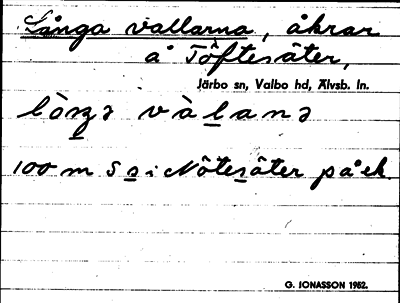 Långa vallarna, åkrar
å Töftesäter,
Järbo sn, Valbo hd, Älvsb. ln.
lòŋə vàlanə
100 m S o i Nötesäter på ek.
G. IONASSON 1952.